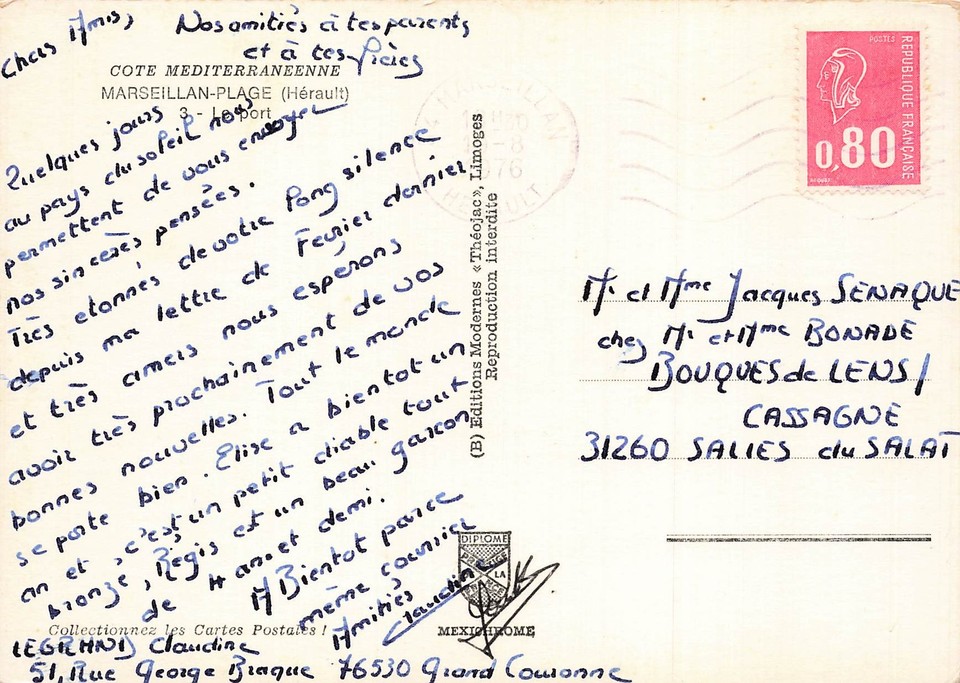 Chers Amis,
Nos amitiés à tes parents
et à tes frères
COTE MEDITERRANEENNE
MARSEILLAN-PLAGE (Hérault)
3 - Le port
Quelques jours
au pays du soleil nous
permettent de vous envoyer
nos sincères pensées.
Très etonnés de votre long silence
depuis ma lettre de Fevrier dernier
et très amers nous esperons
avoir très prochainement de vos
bonnes nouvelles. Tout le monde
se porte bien. Elise a bientot un
an et c'est un petit diable tout
bronzé, Régis est un beau garcon
de 4 ans et demi.
A Bientot parce
même courrier
Amitiés
Claudine
Collectionnez les Cartes Postales !
LEGRAND Claudine
51, Rue George Braque 76530 Grand Couronne
(B) Editions Modernes «Théojac», Limoges
Reproduction interdite
DIPLOME
PRESTIGE
LA
FRANCE
MEXICHROME
MARSEILLAN
-8
76
HERAULT
POSTES
REPUBLIQUE FRANÇAISE
0,80
Mr et Mme Jacques SENAQUE
chez Mr et Mme BONADE
BOUQUES de LENS /
CASSAGNE
31260 SALIES du SALAT